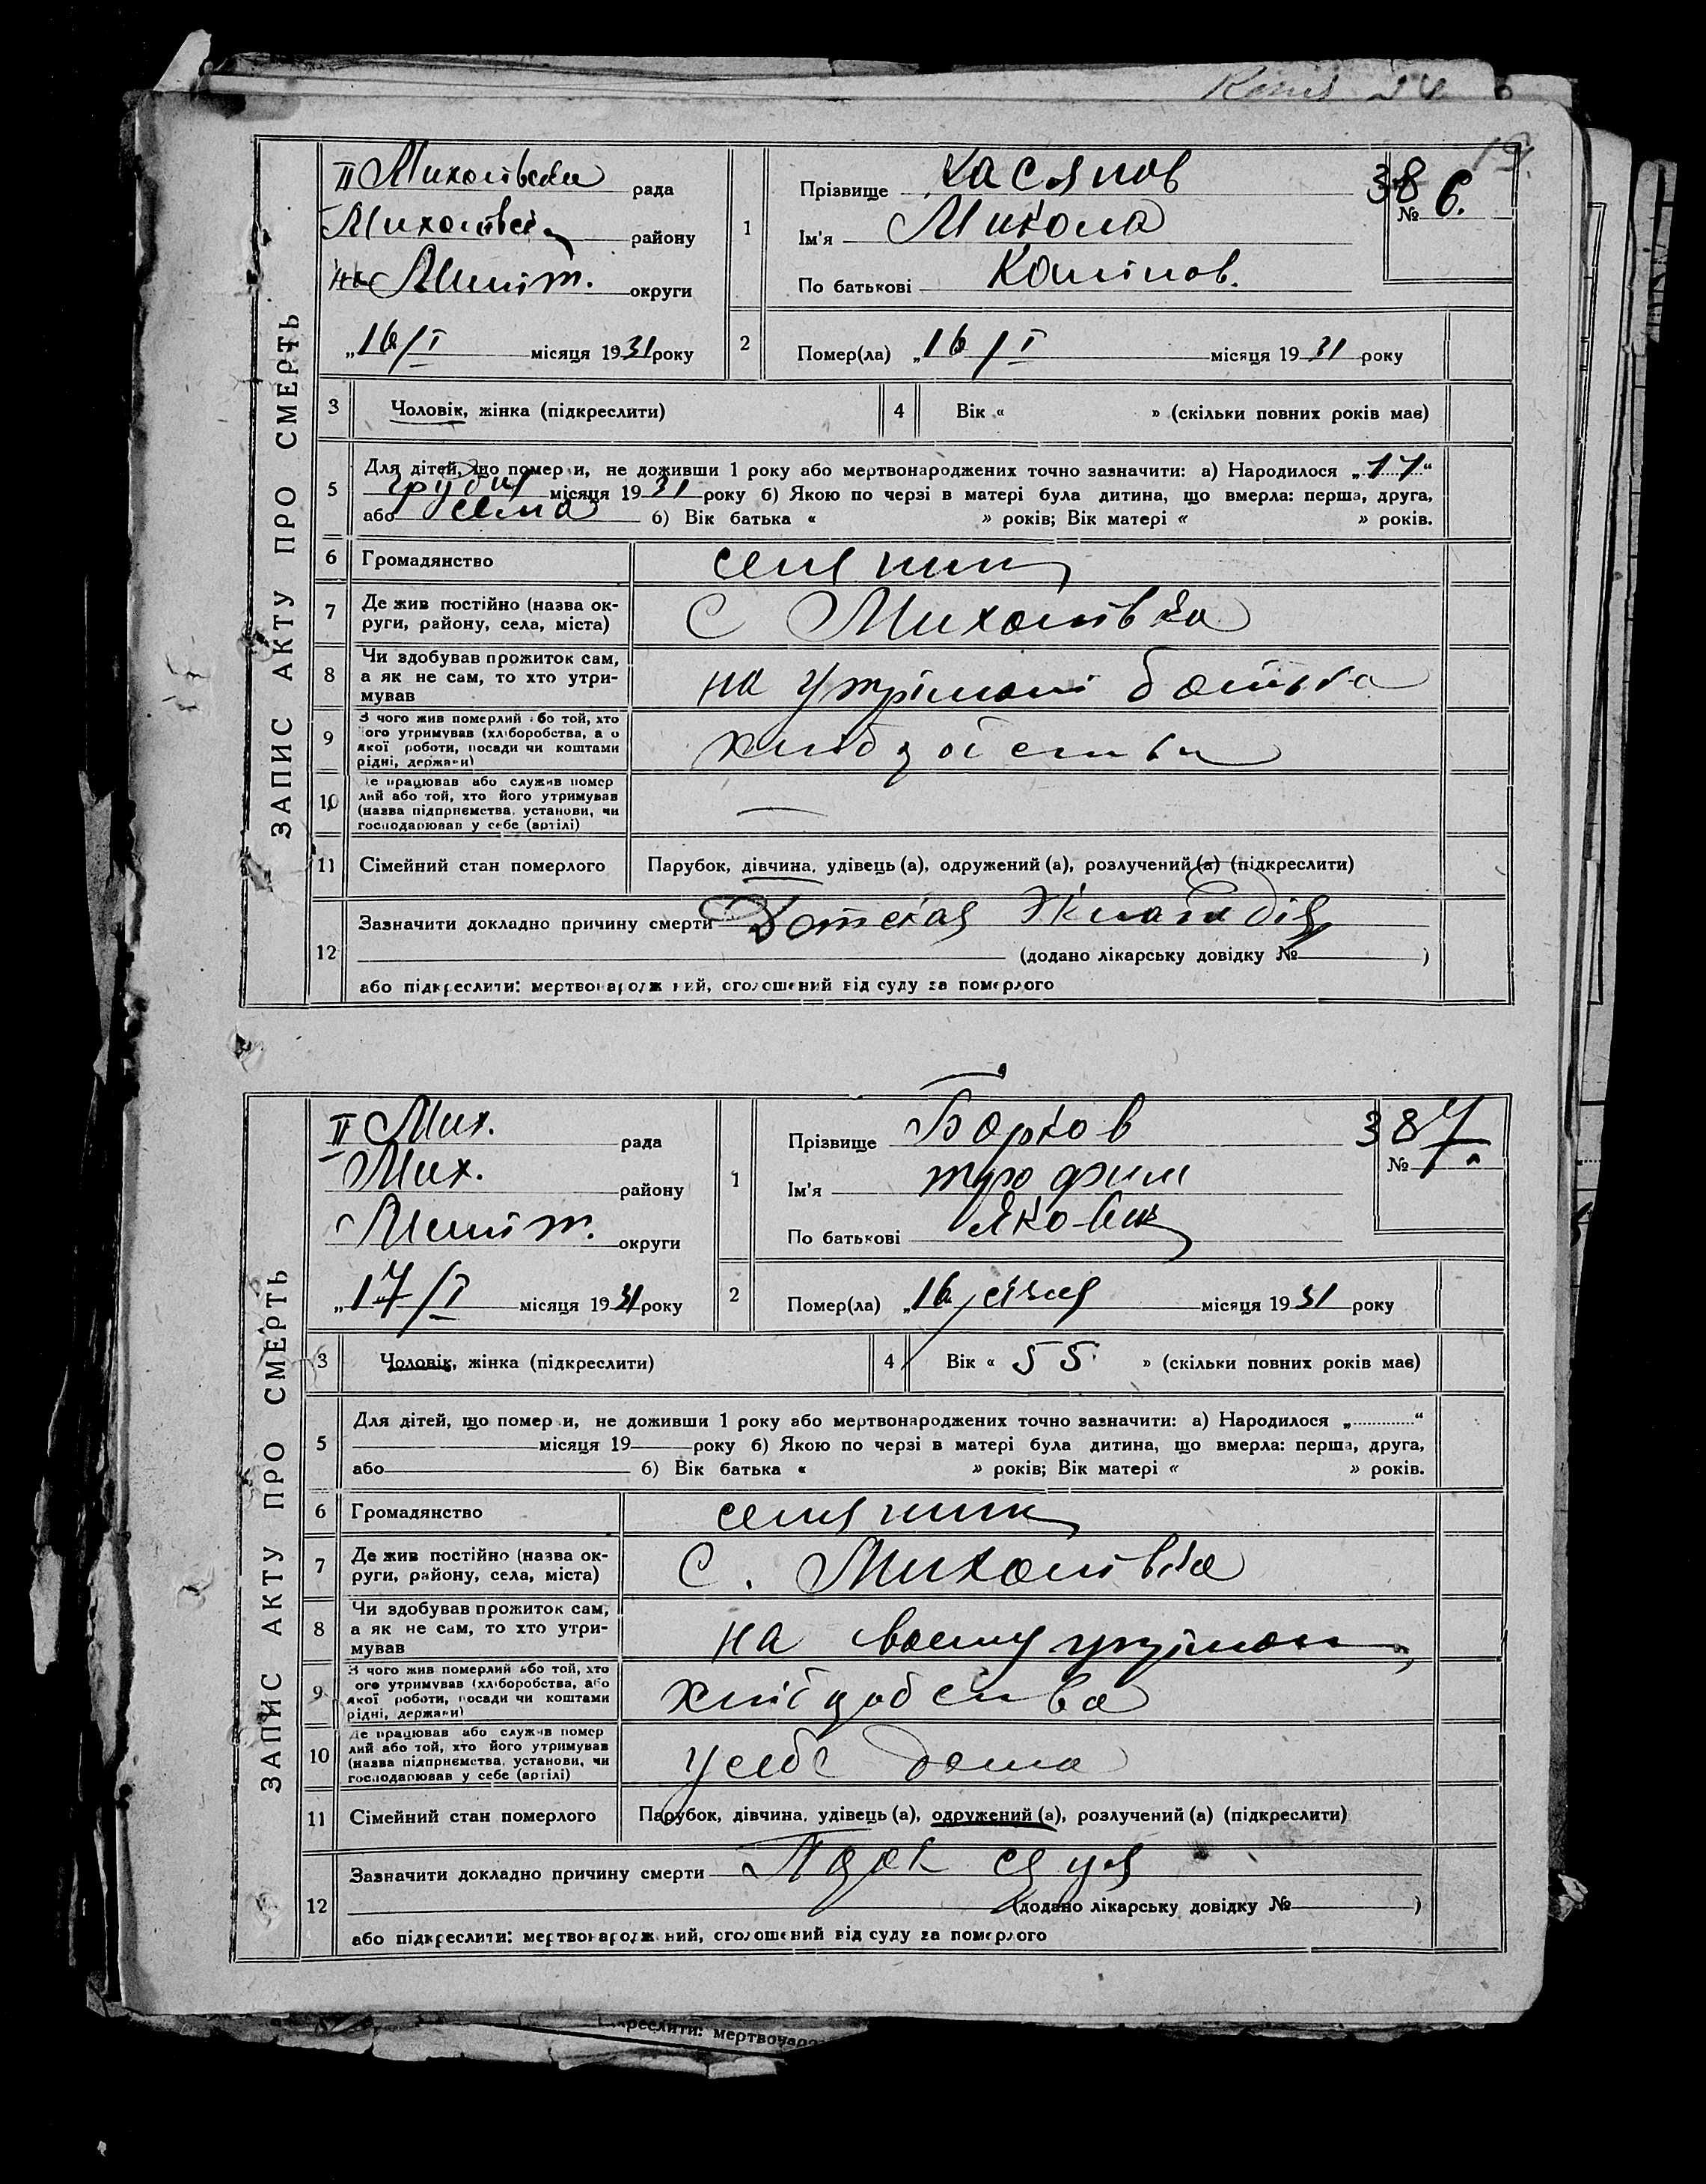 19.
ЗАПИС АКТУ ПРО СМЕРТЬ
II Михолівська рада
Михолівськ району
Меліт. округи
„16/I місяця 1931 року
1 Прізвище Касянов
Ім'я Микола
По батькові
386.
№
2 Помер(ла) „16/I місяця 1931 року
3 Чоловік, жінка (підкреслити)
4 Вік « » (скільки повних років має)
5 Для дітей, що померли, не доживши 1 року або мертвонароджених точно зазначити: а) Народилося „17“
грудня місяця 1931 року б) Якою по черзі в матері була дитина, що вмерла: перша, друга,
або сема б) Вік батька « » років; Вік матері « » років.
6 Громадянство селянин
7 Де жив постійно (назва ок-
руги, району, села, міста) С Михолівка
8 Чи здобував прожиток сам,
а як не сам, то хто утри-
мував на утрімані батька
9 З чого жив померлий або той, хто
його утримував (хліборобства, або
якої роботи, посади чи коштами
рідні, держави)
10 Де працював або служив помер
лий або той, хто його утримував
(назва підприємства, установи, чи
господарював у себе (артілі) —
11 Сімейний стан померлого Парубок, дівчина, удівець (а), одружений (а), розлучений (а) (підкреслити)
12 Зазначити докладно причину смерти
(додано лікарську довідку № )
або підкреслити: мертвонароджений, оголошений від суду за померлого
ЗАПИС АКТУ ПРО СМЕРТЬ
II Мих. рада
Мих. району
Меліт. округи
„17/I місяця 1931 року
1 Прізвище Борков
Ім'я трофим
По батькові Якович
387.
№
2 Помер(ла) „16 січня місяця 1931 року
3 Чоловік, жінка (підкреслити)
4 Вік « 55 » (скільки повних років має)
5 Для дітей, що померли, не доживши 1 року або мертвонароджених точно зазначити: а) Народилося „ “
місяця 19 року б) Якою по черзі в матері була дитина, що вмерла: перша, друга,
або б) Вік батька « » років; Вік матері « » років.
6 Громадянство селянин
7 Де жив постійно (назва ок-
руги, району, села, міста) С. Михолівка
8 Чи здобував прожиток сам,
а як не сам, то хто утри-
мував на своему утріман
9 З чого жив померлий або той, хто
його утримував (хліборобства, або
якої роботи, посади чи коштами
рідні, держави)
10 Де працював або служив помер
лий або той, хто його утримував
(назва підприємства, установи, чи
господарював у себе (артілі) у себе дома
11 Сімейний стан померлого Парубок, дівчина, удівець (а), одружений (а), розлучений (а) (підкреслити)
12 Зазначити докладно причину смерти
(додано лікарську довідку № )
або підкреслити: мертвонароджений, оголошений від суду за померлого